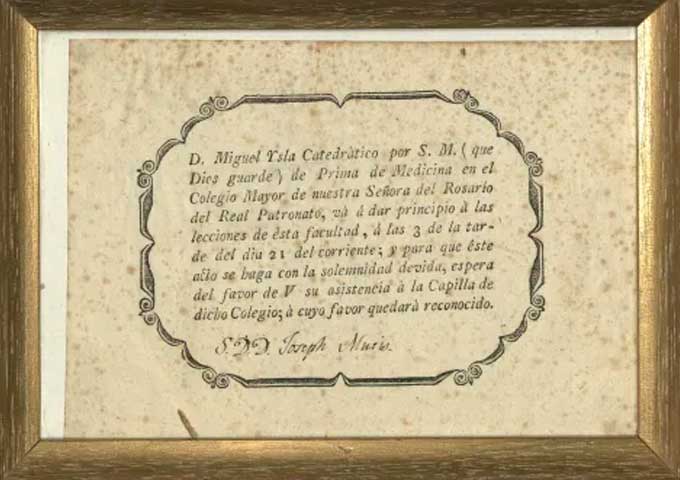 D. Miguel Ysla Catedràtico por S. M. ( que
Dios guarde ) de Prima de Medicina en el
Colegio Mayor de nuestra Señora del Rosario
del Real Patronato, và á dar principio à las
lecciones de ésta facultad, á las 3 de la tar-
de del dia 21 del corriente; y para que éste
acto se haga con la solemnidad devida, espera
del favor de V su asistencia à la Capilla de
dicho Colegio; à cuyo favor quedarà reconocido.
S. D. D. Joseph Mutis.